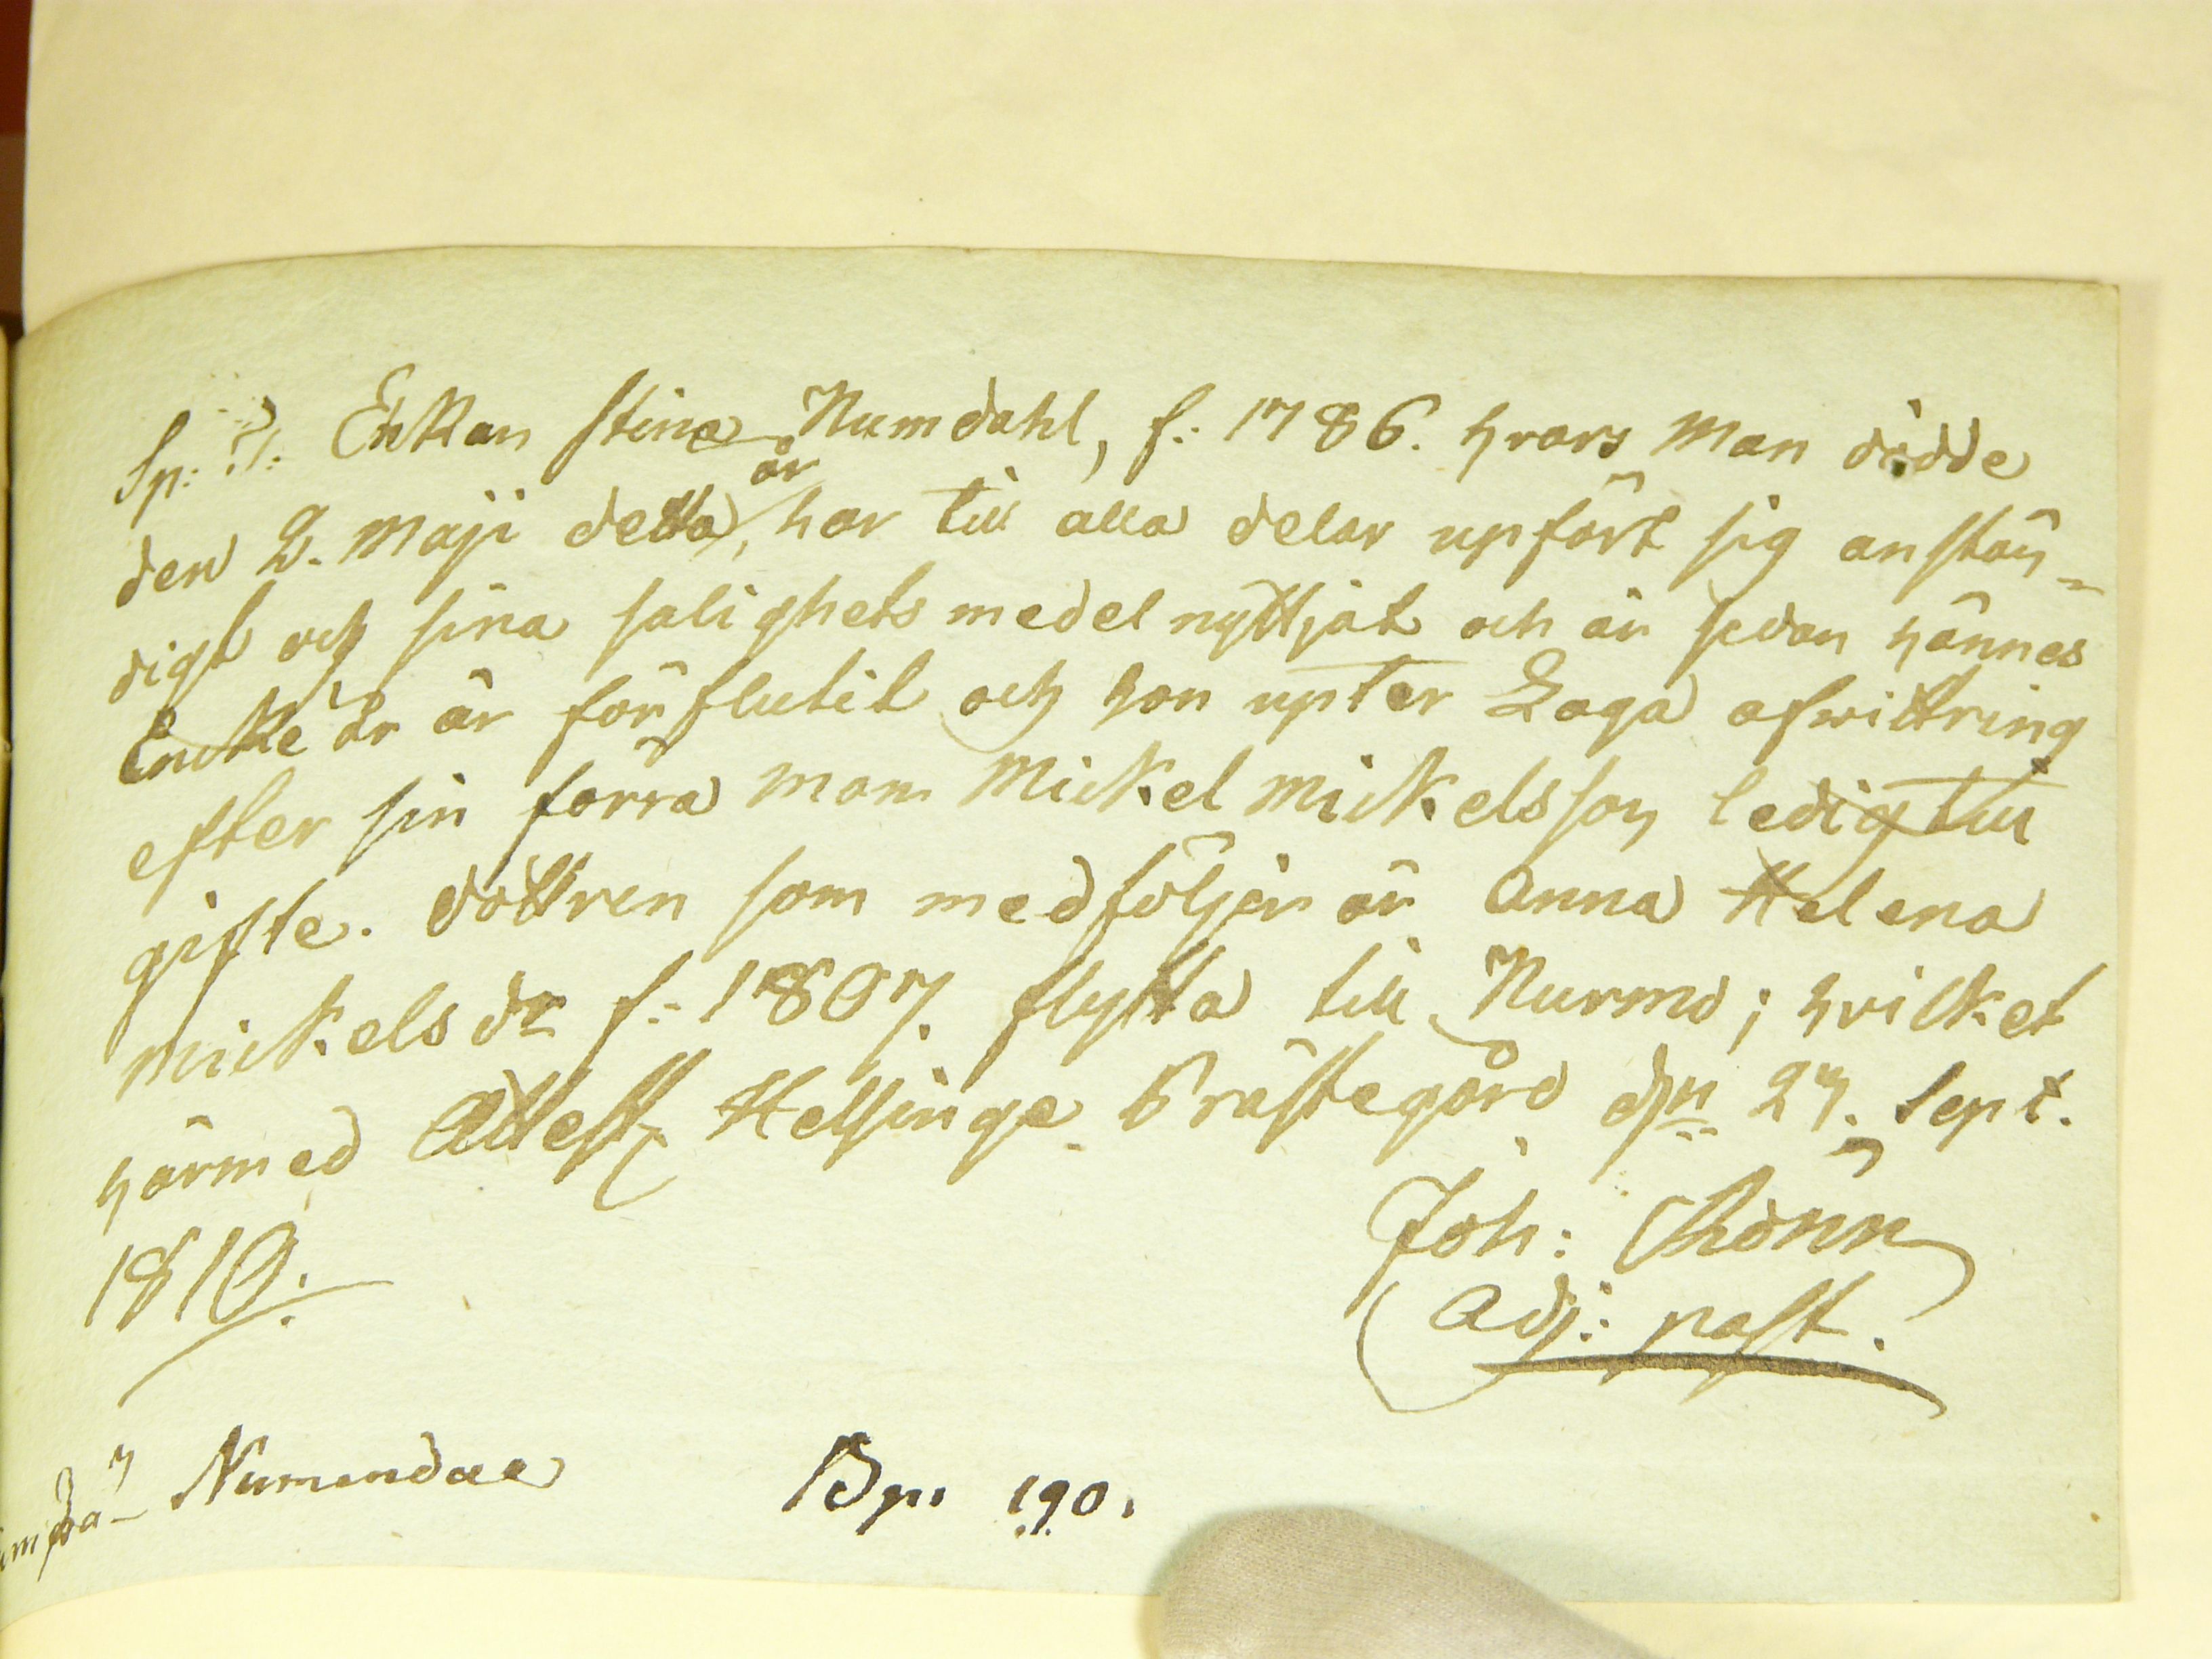 Sp: Enkan Stina Numdahl, f: 1786. hvars man dödde
den 2. Maji detta år, har till alla delar upfört sig anstän-
digt och sina salighets medel nyttjat och är sedan hännes
Encke år är förflutit och hon upter Laga afwittring
efter sin förra man Mickel Mickelsson ledig till
gifte. dottren som medföljer är Anna Helena
Mickelsdr f: 1807. flytta till Nurmo; hvilket
härmed Attest. Helsinge Prästegård dn 27. Sept.
1810.
Joh:
Adj: past.
Numendal Bp. 190.